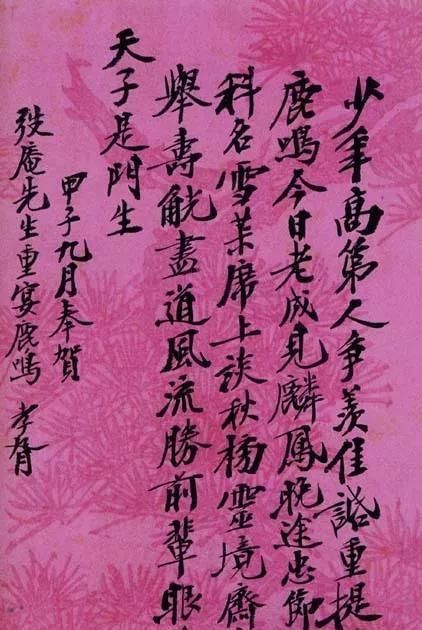 少年高第人争羨佳話重提
鹿鳴今日老成見麟鳳晚途忠節
科名雪席上談秋榜靈境齋
舉壽觥盡道風流勝前輩眼
天子是門生
甲子九月奉賀
弢庵先生重宴鹿鳴 孝胥